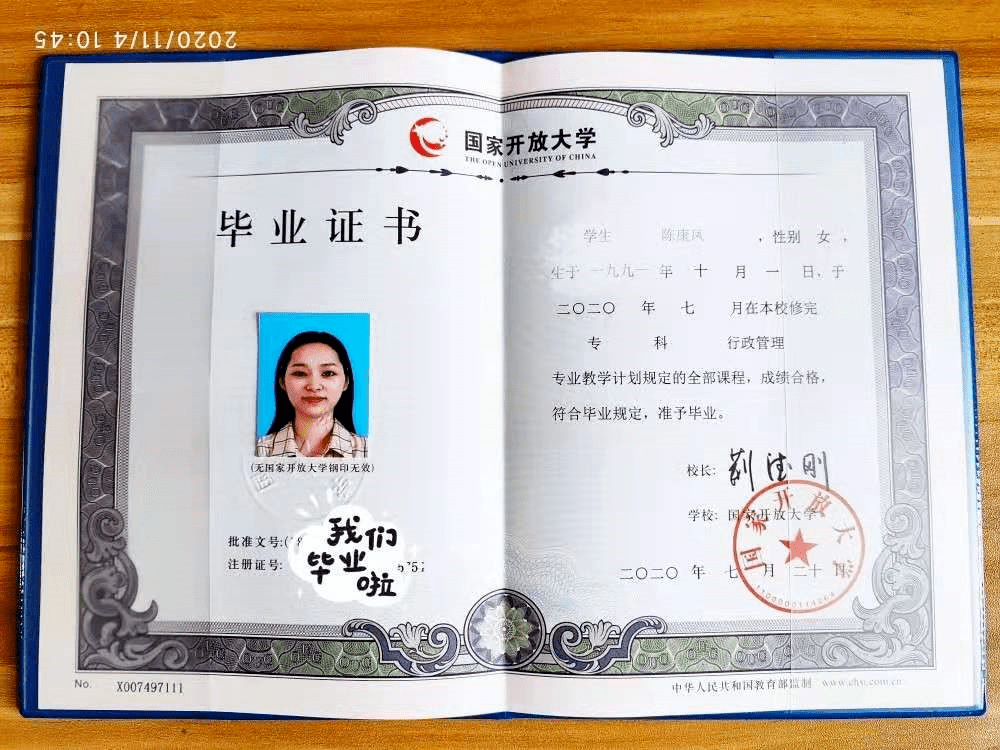 2020/11/4 10:45
国家开放大学
THE OPEN UNIVERSITY OF CHINA
毕业证书
(无国家开放大学钢印无效)
批准文号:(
注册证号:
我们
毕业
啦
No. X007497111
学生 陈康凤 ，性别 女，
生于 一九九一 年 十 月 一 日、于
二〇二〇 年 七 月在本校修完
专 科 行政管理
专业教学计划规定的全部课程，成绩合格，
符合毕业规定，准予毕业。
校长:
学校: 国家开放大学
国家开放大学
二〇二〇 年 七 月 二十
中华人民共和国教育部监制 www.chsi.com.cn